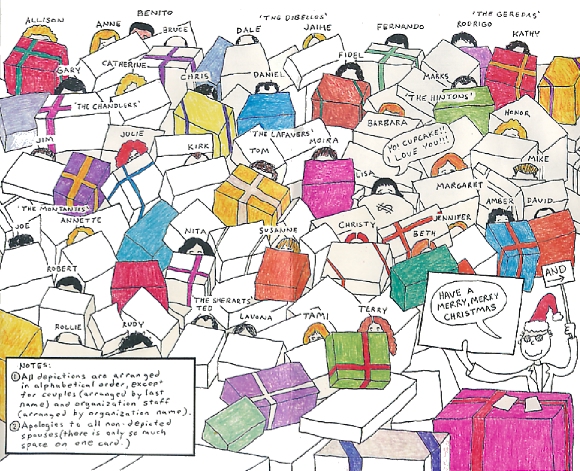 ALLISON
ANNE
BENITO
BRUCE
'THE DIBELLOS'
DALE
JAIME
FERNANDO
'THE GEREDAS'
RODRIGO
KATHY
GARY
CATHERINE
CHRIS
DANIEL
FIDEL
MARKS
'THE CHANDLERS'
'THE HINTONS'
BARBARA
HONOR
JIM
JULIE
KIRK
'THE LAFAVERS'
TOM
MOIRA
YO! CUPCAKE!!!
I LOVE YOU!!!
LISA
MIKE
MARGARET
'THE MONTANIOS'
ANNETTE
JOE
NITA
SUSANNE
CHRISTY
JENNIFER
BETH
AMBER
DAVID
ROBERT
ROLLIE
RUDY
TED
LAVONA
TAMI
TERRY
HAVE A
MERRY, MERRY
CHRISTMAS
AND
NOTES:
① All depictions are arranged
in alphabetical order, except
for couples (arranged by last
name) and organization staff
(arranged by organization name).
② Apologies to all non-depicted
spouses (there is only so much
space on one card.)